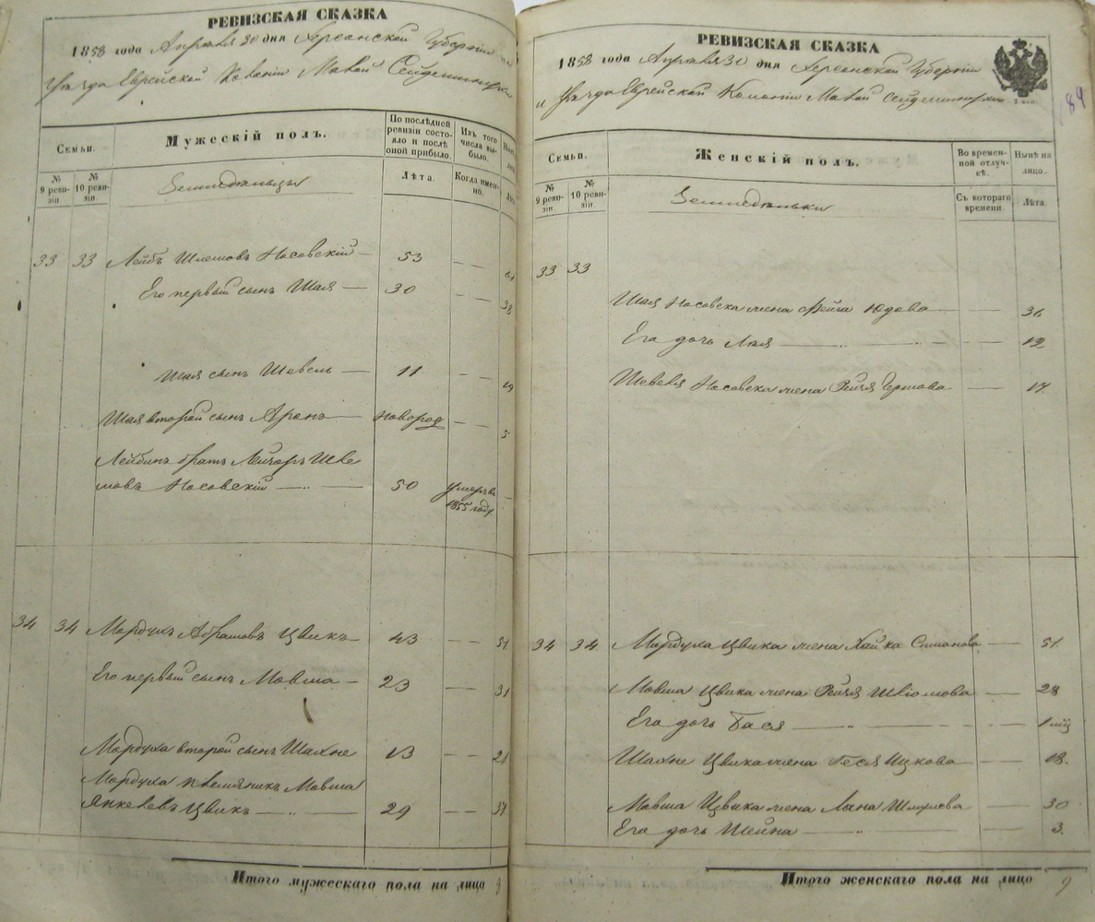 РЕВИЗСКАЯ СКАЗКА
1858 года Апреля 30 дня Херсонской Губернии
Уезда Еврейской Колонии Малой Сейдеминухи
Семьи.
Мужескій полъ.
По послѣдней ревизіи состояло и послѣ оной прибыло.
Изъ того числа выбыло.
№ 9 ревизіи
№ 10 ревизіи
Лѣта.
Когда именно.
Земледельцы
33 33 Лейбъ Шлемовъ Носовскій 53
Его первый сынъ Шая 30 38
Шая сынъ Шевель 11 19
Шая второй сынъ Аронъ новород 5
Лейбинъ братъ Шле
мовъ Носовскій 50 умеръ въ 1855 году
34 34 Мордухъ Абрамовъ Цвикъ 43 51
Его первый сынъ Мовша 23 31
Мордуха второй сынъ Шахне 13 21
Мордуха племянникъ Мовша
Янкелевъ Цвикъ 29 37
Итого мужескаго пола на лицо 9
РЕВИЗСКАЯ СКАЗКА
1858 года Апреля 30 дня Херсонской Губерніи
и Уезда Еврейской Колоніи Малой Сейдеминухи
184
Семьи.
Женскій полъ.
Во временной отлучкѣ.
Нынѣ на лицо.
№ 9 ревизіи
№ 10 ревизіи
Съ котораго времени.
Лѣта.
Земледельки
33 33
Шая Носовска жена Фейга Юдова 36
Его дочь Лея 12
Шевеля Носовска жена Рейзя Гершова 17
34 34 Мордуха Цвика жена Хайка Симонова 51
Мовша Цвика жена Рейзя Шліомова 28
Его дочь Бася 1 мц
Шахне Цвика жена Песя Ицкова 18.
Мовша Цвика жена Хана Шмулева 30
Его дочь Шейна 3.
Итого женскаго пола на лицо 9